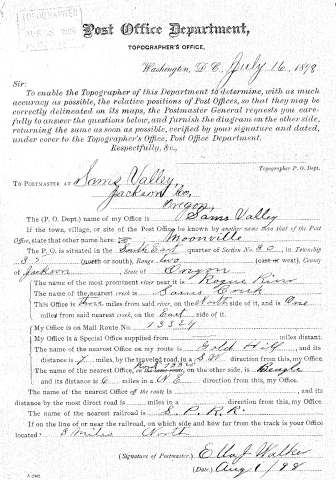 TOPOGRAPHER
Post Office Department,
TOPOGRAPHER'S OFFICE,
Washington, D. C., July 16, 1898
Sir:
To enable the Topographer of this Department to determine, with as much
accuracy as possible, the relative positions of Post Offices, so that they may be
correctly delineated on its maps, the Postmaster General requests you care-
fully to answer the questions below, and furnish the diagram on the other side,
returning the same as soon as possible, verified by your signature and dated,
under cover to the Topographer's Office, Post Office Department.
Respectfully, &c.,
Topographer P. O. Dept.
TO POSTMASTER AT Sams Valley,
Jackson Co.
Oregon
The (P. O. Dept.) name of my Office is Sams Valley
If the town, village, or site of the Post Office be known by another name than that of the Post
Office, state that other name here: Moonville
The P. O. is situated in the South East quarter of Section No. 30, in Township
35 (north or south), Range two (east or west), County
of Jackson, State of Oregon
The name of the most prominent river near it is Rogue River
The name of the nearest creek is Sams Creek
This Office is three miles from said river, on the North side of it, and is One
miles from said nearest creek, on the East side of it.
My Office is on Mail Route No. 13329
My Office is a Special Office supplied from miles distant.
The name of the nearest Office on my route is Gold Hill, and its
distance is 7 miles, by the traveled road, in a S.W. direction from this, my Office.
The name of the nearest Office, on the other side, is Beagle
and its distance is 6 miles in a N.E. direction from this, my Office.
The name of the nearest Office off the route is, and its
distance by the most direct road is miles in a direction from this, my Office.
The name of the nearest railroad is S. P. R. R.
If on the line of or near the railroad, on which side and how far from the track is your Office
located? 3 miles North
(Signature of Postmaster.) Ella J Walker
(Date.) Aug 1/98